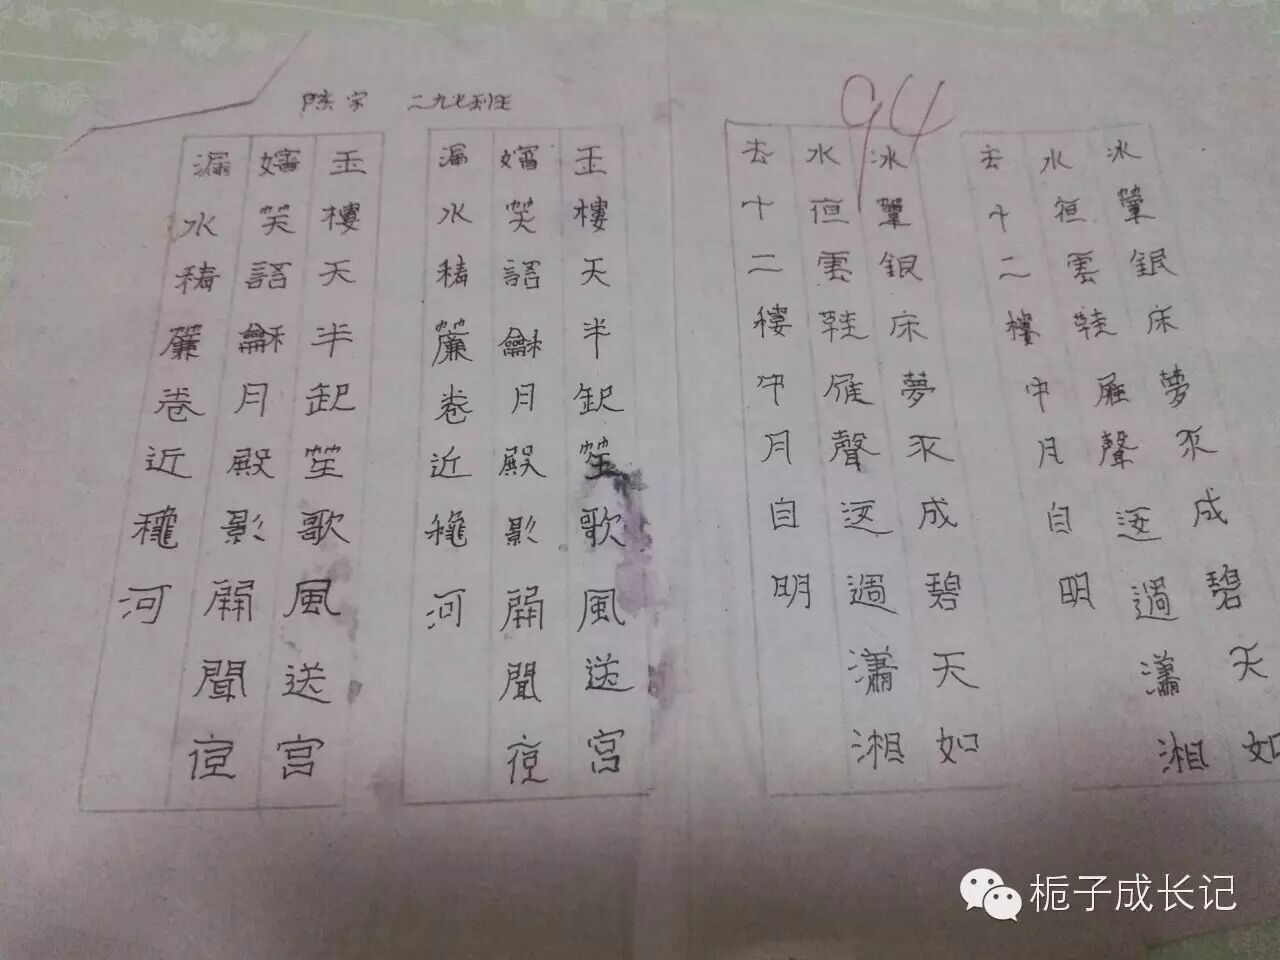 陈宇 二九七班
94
冰簟銀床夢不成碧天如
水夜雲輕雁聲遠過瀟湘
去十二樓中月自明
冰簟銀床夢不成碧天如
水夜雲輕雁聲遠過瀟湘
去十二樓中月自明
玉樓天半起笙歌風送宮
嬪笑語龢月殿影開聞夜
漏水精簾卷近穐河
玉樓天半起笙歌風送宮
嬪笑語龢月殿影開聞夜
漏水精簾卷近穐河
栀子成长记